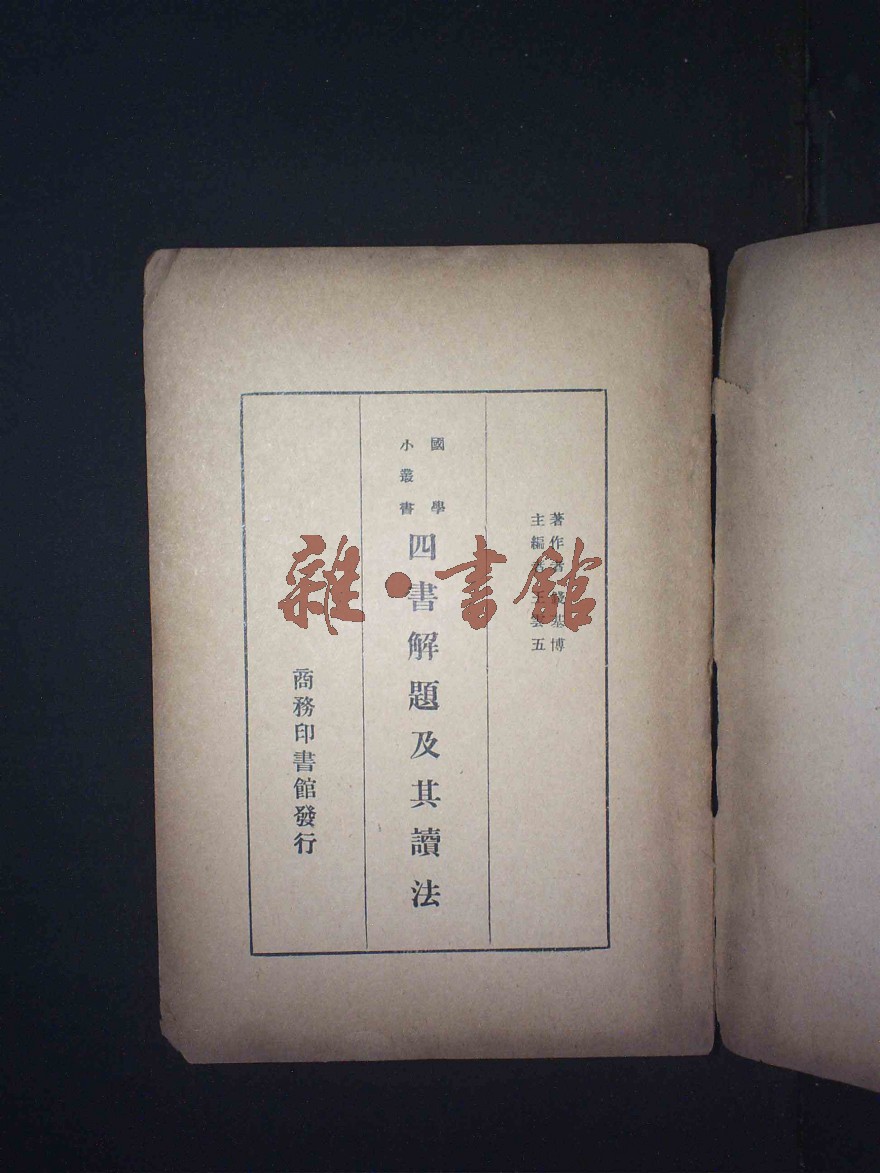 著作者錢基博
主編者王雲五
國學
小叢書
四書解題及其讀法
商務印書館發行
雜·書館